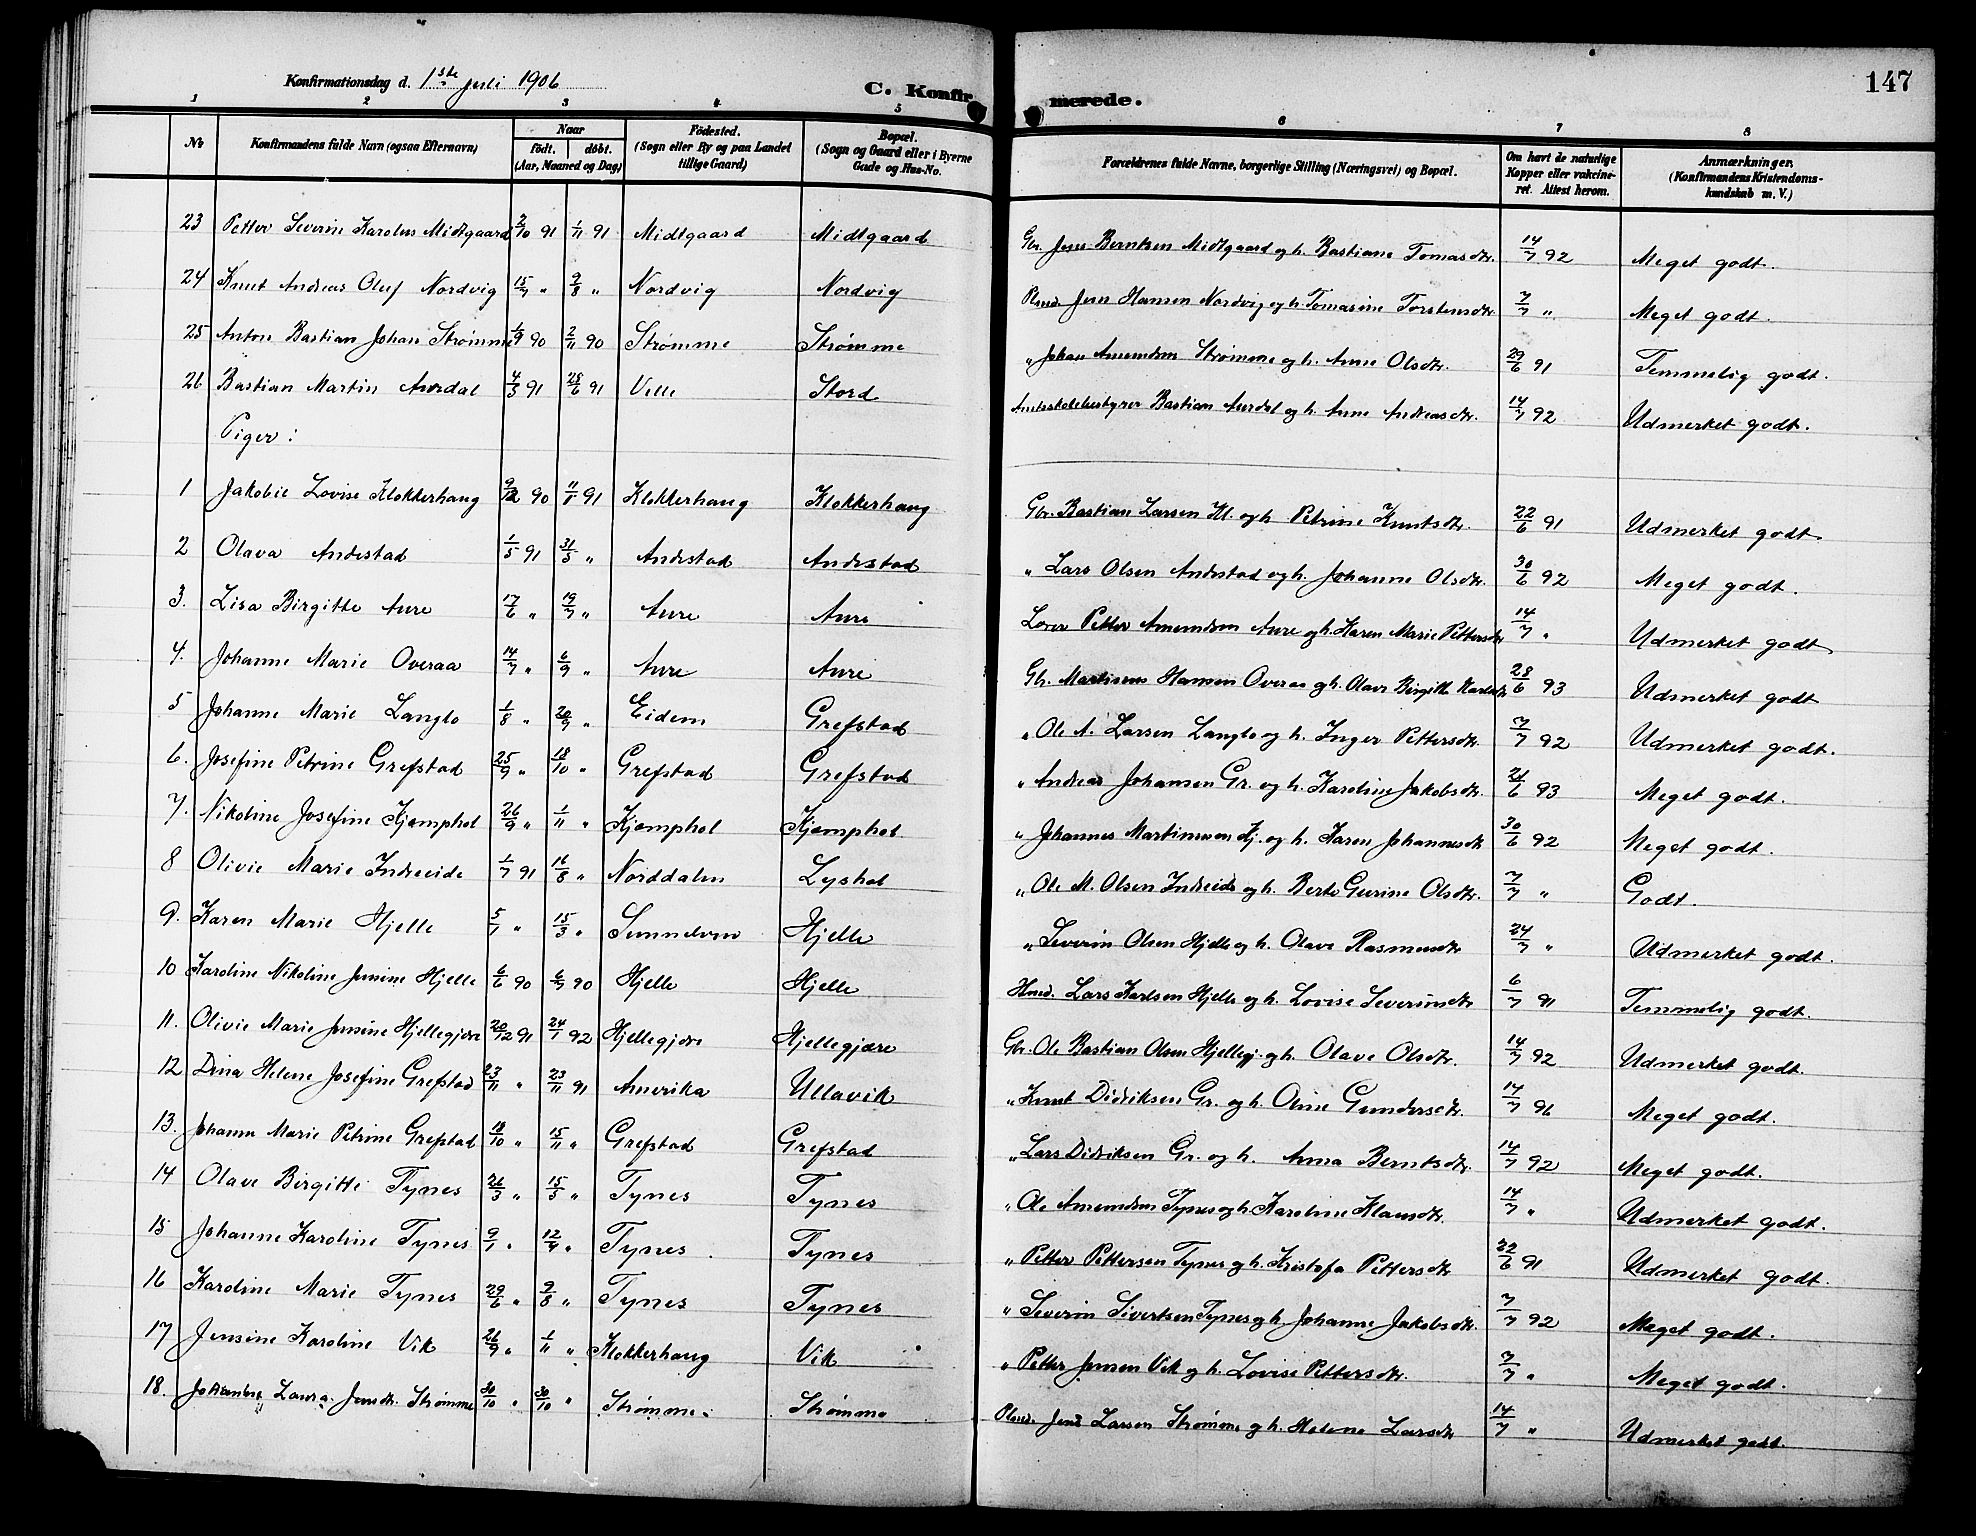 Konfirmationsdag d. 1ste juli 1906
C. Konfirmerede.
147
1 2 3 4 5 6 7 8
No
Konfirmandens fulde Navn (ogsaa Efternavn)
Naar
født. døbt.
(Aar, Maaned og Dag)
Födested.
(Sogn eller By og paa Landet
tillige Gaard)
Bopæl.
(Sogn og Gaard eller i Byerne
Gade og Hus-No.
Forældrenes fulde Navne, borgerlige Stilling (Næringsvei) og Bopæl.
Om havt de naturlige
Kopper eller vakcine-
ret. Attest herom.
Anmærkninger.
(Konfirmandens Kristendoms-
kundskab m. V.)
23 Petter Severin Karolus Midtgaard 2/10 91 1/11 91 Midtgaard Midtgaard Gbr. Jens Berntsen Midtgaard og h. Bastiane Tomasdtr. 14/7 92 Meget godt.
24 Knut Andreas Oluf Nordvig 15/7 " 9/8 " Nordvig Nordvig Plmd. Jens Hansen Nordvig og h. Tomasine Torstensdtr. 7/7 " Meget godt.
25 Anton Bastian Johan Strømme 1/9 90 2/11 90 Strømme Strømme " Johan Amundsen Strømme og h. Anne Olsdtr. 29/6 91 Temmelig godt.
26 Bastian Martin Aurdal 4/3 91 28/6 91 Velle Stord Amtsskolebestyrer Bastian Aurdal og h. Anne Andreasdtr. 14/7 92 Udmerket godt.
Piger:
1 Jakobie Lovise Klokkerhaug 9/12 90 11/1 91 Klokkerhaug Klokkerhaug Gbr. Bastian Larsen Kl. og h. Petrine Knutsdtr. 22/6 91 Udmerket godt.
2 Olava Andestad 1/5 91 31/5 " Andestad Andestad " Lars Olsen Andestad og h. Johanne Olsdtr. 30/6 92 Meget godt.
3. Lisa Birgitte Aure 17/6 " 19/7 " Aure Aure Petter Amundsen Aure og h. Karen Marie Pettersdtr 14/7 " Udmerket godt
4. Johanne Marie Overaa 14/7 " 6/9 " Aure Aure Gbr. Martinus Hansen Overaa og h. Olave Birgitte 28/6 93 Udmerket godt
5 Johanne Marie Langlo 1/8 " 20/9 " Eidem Grefstad " Ole A. Larsen Langlo og h. Inger Pettersdtr. 7/7 92 Udmerket godt.
6. Josefine Petrine Grefstad 25/9 " 18/10 " Grefstad Grefstad " Andreas Johansen Gr. og h. Karoline Jakobsdtr. 21/6 93 Meget godt.
7. Nikoline Josefine Kjemphol 26/9 " 1/11 " Kjemphol Kjemphol " Johannes Martinussen Kj. og h. Karen Johannesdtr 30/6 92 Meget godt.
8 Olivie Marie Indreeide 1/7 91 16/8 " Norddalen Lyshol " Ole M. Olsen Indreeide og h. Berte Gurine Olsdtr. 7/7 " Godt.
9. Karen Marie Hjelle 5/7 " 15/3 " Hjelle " Severin Olsen Hjelle og h. Olave Rasmusdtr 24/7 " Udmerket godt.
10 Karoline Nikoline Jensine Hjelle 6/6 90 6/7 90 Hjelle Hjelle Hmd. Lars Karlsen Hjelle og h. Lovise Severinsdtr 6/7 91 Temmelig godt.
11. Olivie Marie Jensine Hjellegjære 20/12 91 24/1 92 Hjellegjære Hjellegjære Gbr. Ole Bastian Olsen Hjellegj. og h. Olave Olsdtr. 14/7 92 Udmerket godt.
12 Dina Helene Josefine Grefstad 23/11 " 23/11 91 Amerika Ullavik " Knut Didriksen Gr. og h. Oline Gundersdtr. 14/7 96 Meget godt.
13. Johanne Marie Petrine Grefstad 18/10 " 15/11 " Grefstad Grefstad " Lars Didriksen Gr. og h. Anna Berntsdtr. 14/7 92 Meget godt.
14 Olave Birgitte Tynes 26/3 " 15/5 " Tynes Tynes " Ole Amundsen Tynes og h. Karoline Klausdtr. 14/7 " Udmerket godt.
15 Johanne Karoline Tynes 9/1 " 12/4 " Tynes Tynes " Petter Pettersen Tynes og h. Kristofa Pettersdtr 22/6 91 Udmerket godt.
16 Karoline Marie Tynes 29/6 " 9/8 " Tynes Tynes " Severin Sivertsen Tynes og h. Johanne Jakobsdtr. 7/7 92 Meget godt.
17 Jensine Karoline Vik 26/9 " 1/11 " Klokkerhaug Vik " Petter Jensen Vik og h. Lovise Pettersdtr. 7/7 " Meget godt.
18. Laura Jensdtr. Strømme 30/10 " Strømme Strømme Plmd. Jens Larsen Strømme og h. Helene Larsdtr 14/7 " Udmerket godt.